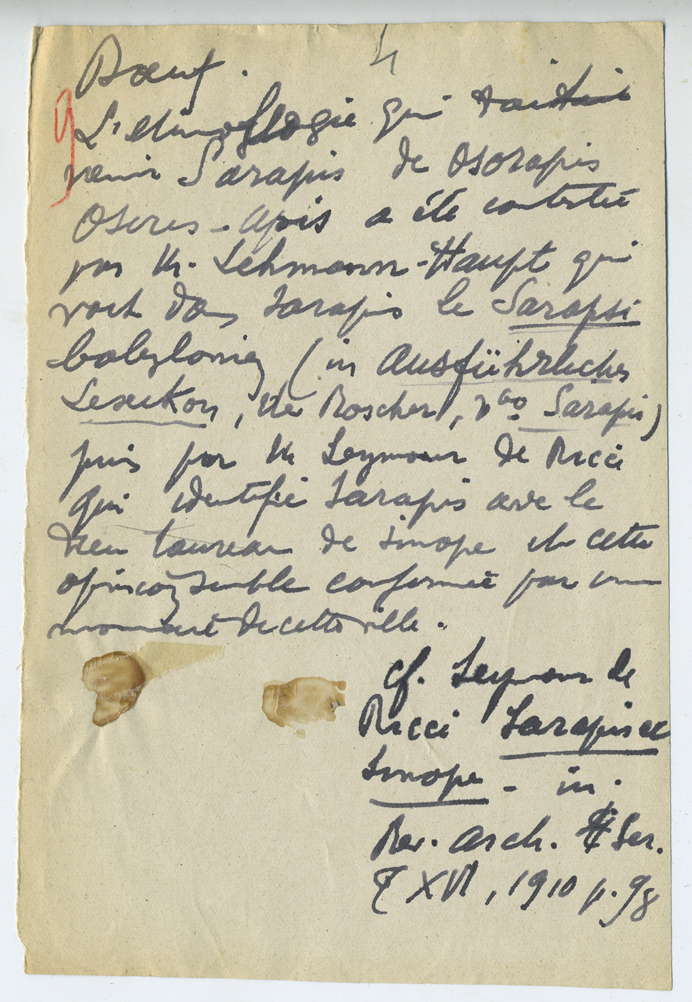 Bœuf.
L'etimologie qui faisait
venir Sarapis de Osorapis
Osiris-Apis a été contestée
par M. Lehmann-Haupt qui
voit dans Sarapis le Sarapsi
babylonien (in Ausführliches
Lexikon, de Roscher, vbo Sarapis)
puis par M Seymour de Ricci
qui identifie Sarapis avec le
Dieu taureau de Sinope et cette
opinion semble confirmée par une
monnaie de cette ville.
cf. Seymour de
Ricci Sarapis et
Sinope - in.
Rev. Arch. Ser.
T XVI, 1910 p. 98